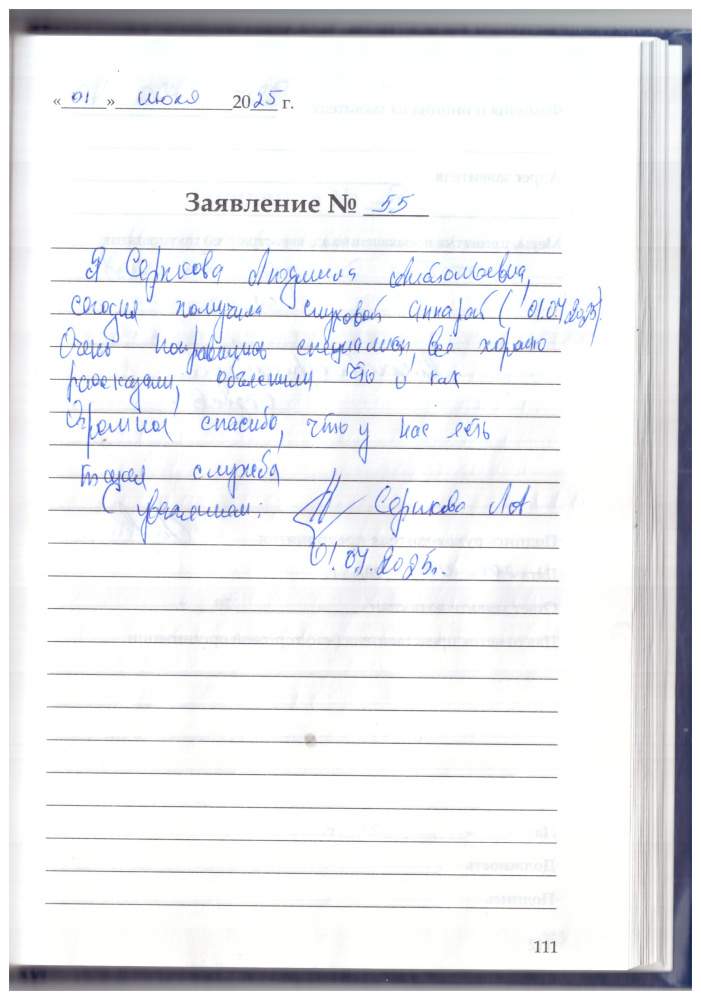 « 01 » июля 2025 г.
Заявление № 55
Я Серикова Людмила
сегодня получила слуховой аппарат (01.07.2025)
Очень понравились специалисты, всё хорошо
рассказали, объяснили что и как
Огромное спасибо, что у нас есть
такая служба
С уважением: Серикова ЛА
01.07.2025г.
111